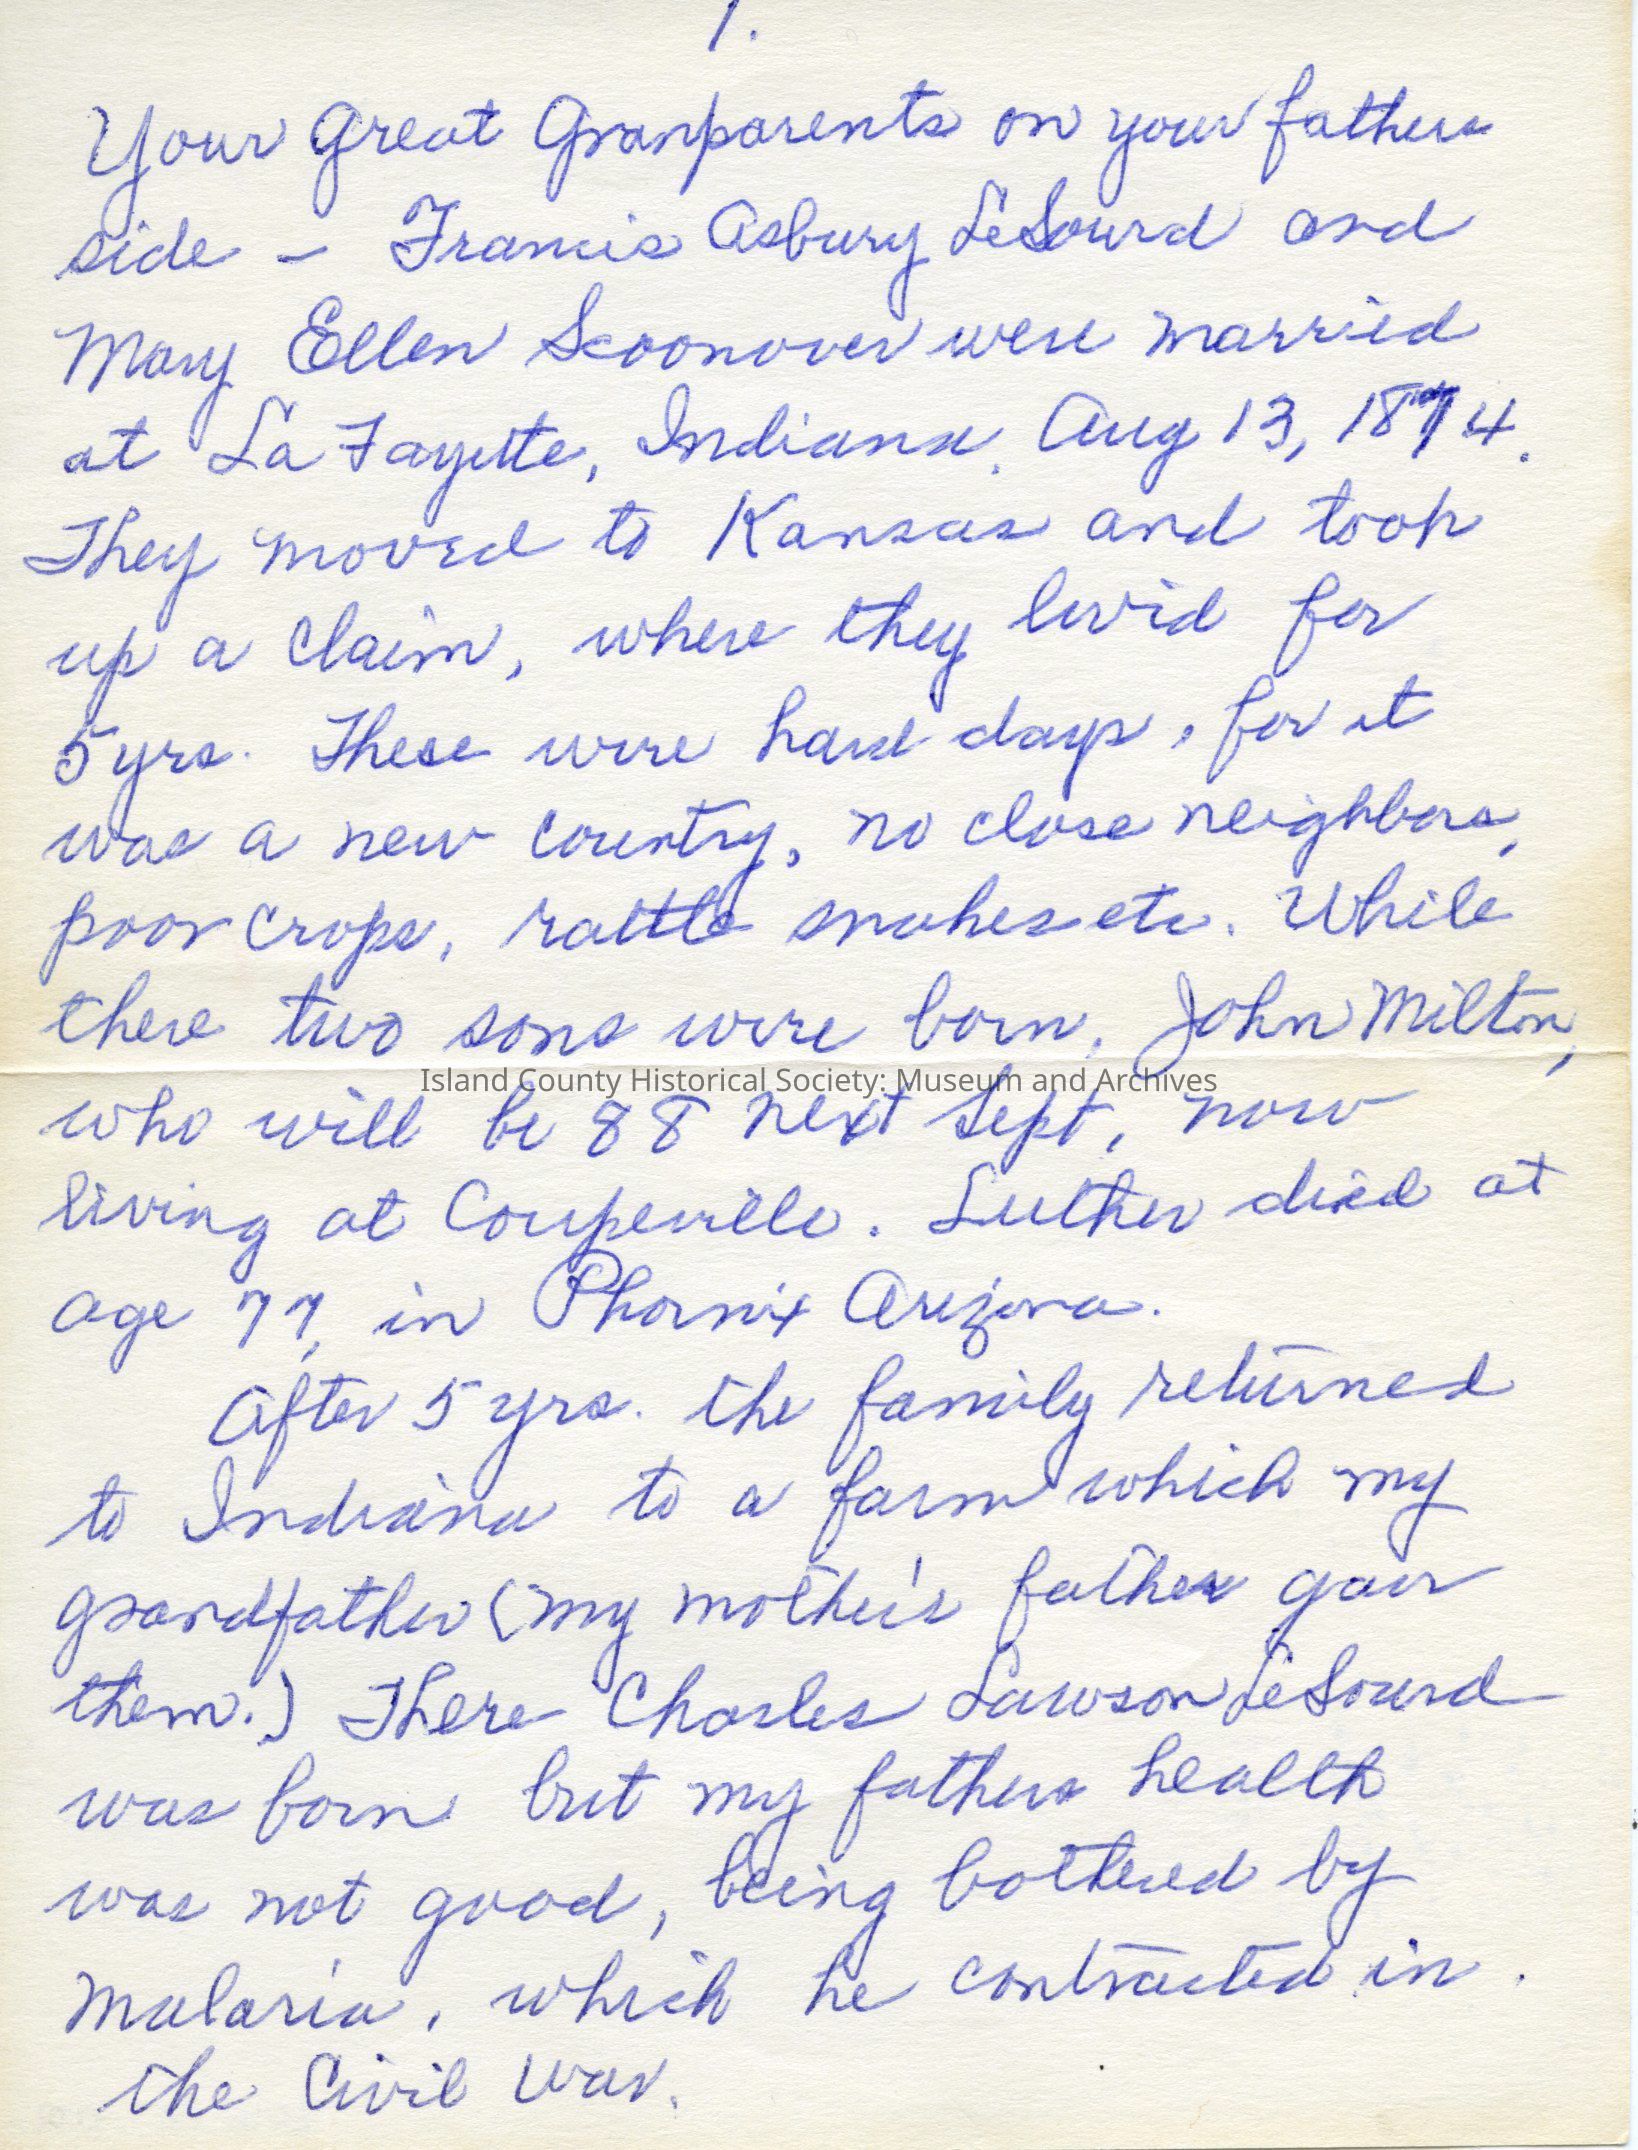 1.
Your Great Granparents on your fathers
side - Francis Asbury LeSourd and
Mary Ellen Scoonover were married
at La Fayette, Indiana. Aug 13, 1874.
They moved to Kansas and took
up a claim, where they lived for
5 yrs. These were hard days, for it
was a new country, no close neighbors,
poor crops, rattle snakes etc. While
there two sons were born, John Milton,
Island County Historical Society: Museum and Archives
who will be 88 next Sept, now
living at Coupeville. Luther died at
age 77, in Phornix Arizona.
After 5 yrs. the family returned
to Indiana to a farm which my
grandfather (my mother's father gave
them.) There Charles Lawson LeSourd
was born but my fathers health
was not good, being bothered by
Malaria, which he contracted in.
the Civil War.